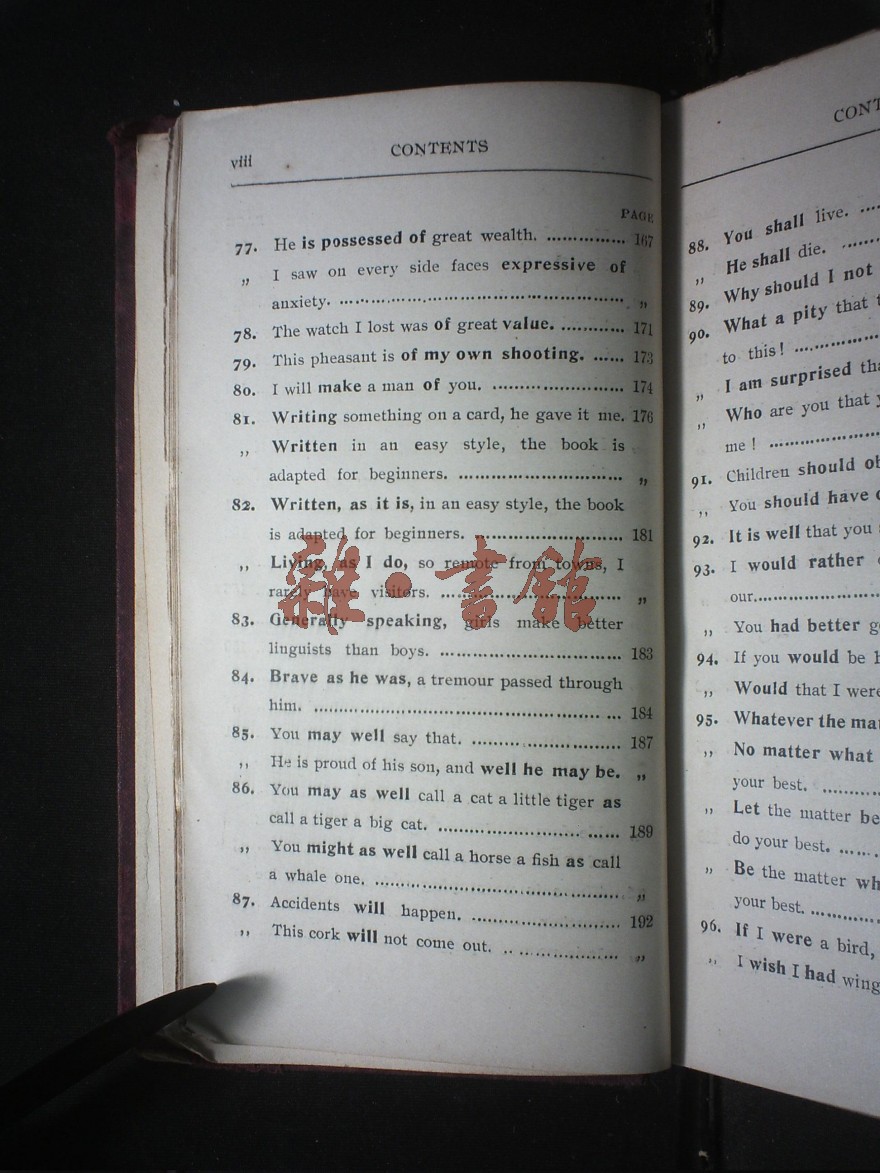 viii
CONTENTS
PAGE
77. He is possessed of great wealth. ............... 167
„ I saw on every side faces expressive of
anxiety. ................................................ „
78. The watch I lost was of great value. ............ 171
79. This pheasant is of my own shooting. ...... 173
80. I will make a man of you. ........................ 174
81. Writing something on a card, he gave it me. 176
„ Written in an easy style, the book is
adapted for beginners. .............................. „
82. Written, as it is, in an easy style, the book
is adapted for beginners. ........................... 181
„ Living, as I do, so remote from towns, I
rarely have visitors. ................................. „
83. Generally speaking, girls make better
linguists than boys. ................................. 183
84. Brave as he was, a tremour passed through
him. ...................................................... 184
85. You may well say that. ........................... 187
„ He is proud of his son, and well he may be. „
86. You may as well call a cat a little tiger as
call a tiger a big cat. ................................ 189
„ You might as well call a horse a fish as call
a whale one. ............................................. „
87. Accidents will happen. ........................... 192
„ This cork will not come out. ..................... „
雜·書館
CONT
88. You shall live. ....
„ He shall die. ......
89. Why should I not
90. What a pity that
to this! ...............
„ I am surprised tha
„ Who are you that y
me! ....................
91. Children should ob
„ You should have
92. It is well that you
93. I would rather
our.....................
„ You had better g
94. If you would be
„ Would that I were
95. Whatever the mat
„ No matter what
your best. ............
„ Let the matter be
do your best. .......
„ Be the matter wh
your best. ............
96. If I were a bird,
„ I wish I had wing